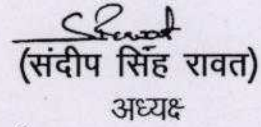 (संदीप सिंह रावत)
अध्यक्ष